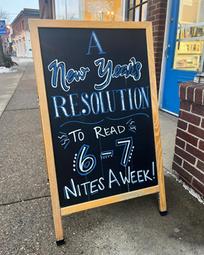 A
New Year's
RESOLUTION
TO READ
6-7
NITES A WEEK!